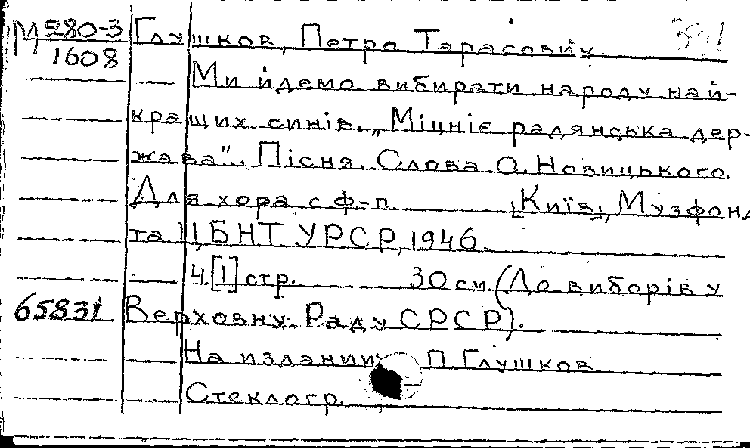 М 280-3 Глушков, Петро Тарасович.
1608
Ми йдемо вибирати народу най-
кращих синів. „Міцніє радянська дер-
жава". Пісня. Слова О. Новицького.
Для хора с ф-п. [Київ], Музфонд
та ЦБНТ УРСР, 1946.
4 [1] стр. 30 см. (До виборів у
65831 Верховну Раду СРСР).
На издании: П. Глушков
Стеклогр.